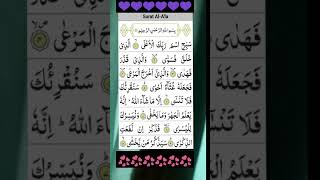 Surat Al-A'la
بِسْمِ اللّٰهِ الرَّحْمٰنِ الرَّحِيْمِ
سَبِّحِ اسْمَ رَبِّكَ الْاَعْلَى ۙ الَّذِیْ
خَلَقَ فَسَوّٰى ۙ وَالَّذِیْ قَدَّرَ
فَهَدٰى ۙ وَالَّذِیْۤ اَخْرَجَ الْمَرْعٰى ۙ
فَجَعَلَهٗ غُثَآءً اَحْوٰى ؕ سَنُقْرِئُكَ
فَلَا تَنْسٰۤى ۙ اِلَّا مَا شَآءَ اللّٰهُ ؕ اِنَّهٗ
يَعْلَمُ الْجَهْرَ وَمَا يَخْفٰى ؕ وَنُيَسِّرُكَ
لِلْيُسْرٰى ۚ فَذَكِّرْ اِنْ نَّفَعَتِ
الذِّكْرٰى ؕ سَيَذَّكَّرُ مَنْ يَّخْشٰى ۙ